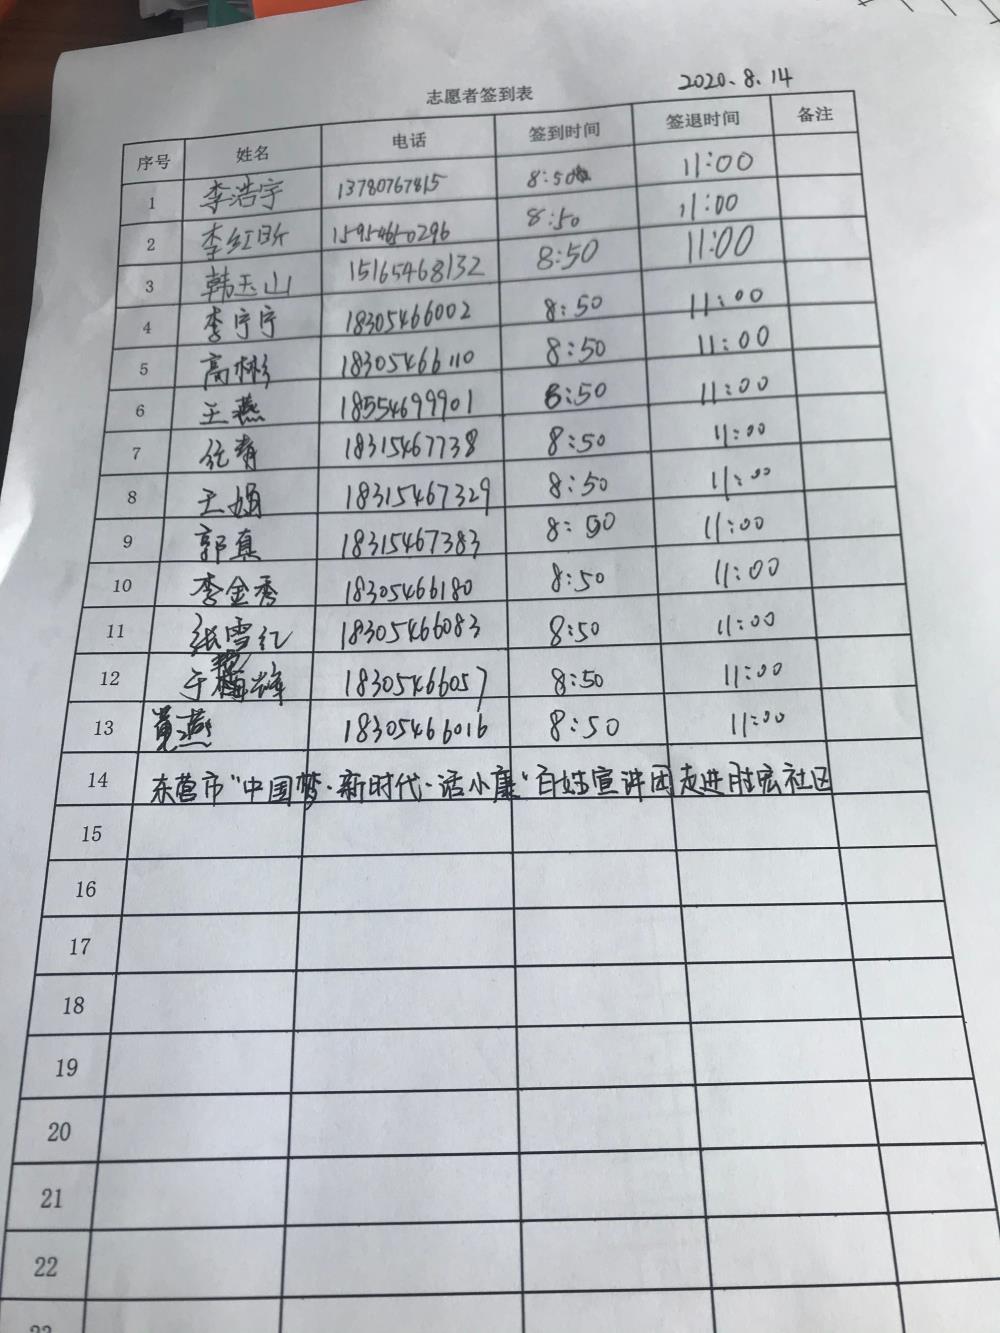 2020.8.14
志愿者签到表
序号 姓名 电话 签到时间 签退时间 备注
1 李浩宇 13780767815 8:50 11:00
2 李红昕 15954650296 8:50 11:00
3 韩玉山 15165468132 8:50 11:00
4 李宁宁 18305466002 8:50 11:00
5 高彬 18305466110 8:50 11:00
6 王燕 18554699901 8:50 11:00
7 18315467738 8:50 11:00
8 王娟 18315467329 8:50 11:00
9 郭真 18315467383 8:50 11:00
10 李金秀 18305466180 8:50 11:00
11 张雪红 18305466083 8:50 11:00
12 18305466057 8:50 11:00
13 18305466016 8:50 11:00
14 东营市"中国梦·新时代·话小康"百姓宣讲团走进胜宏社区
15
16
17
18
19
20
21
22